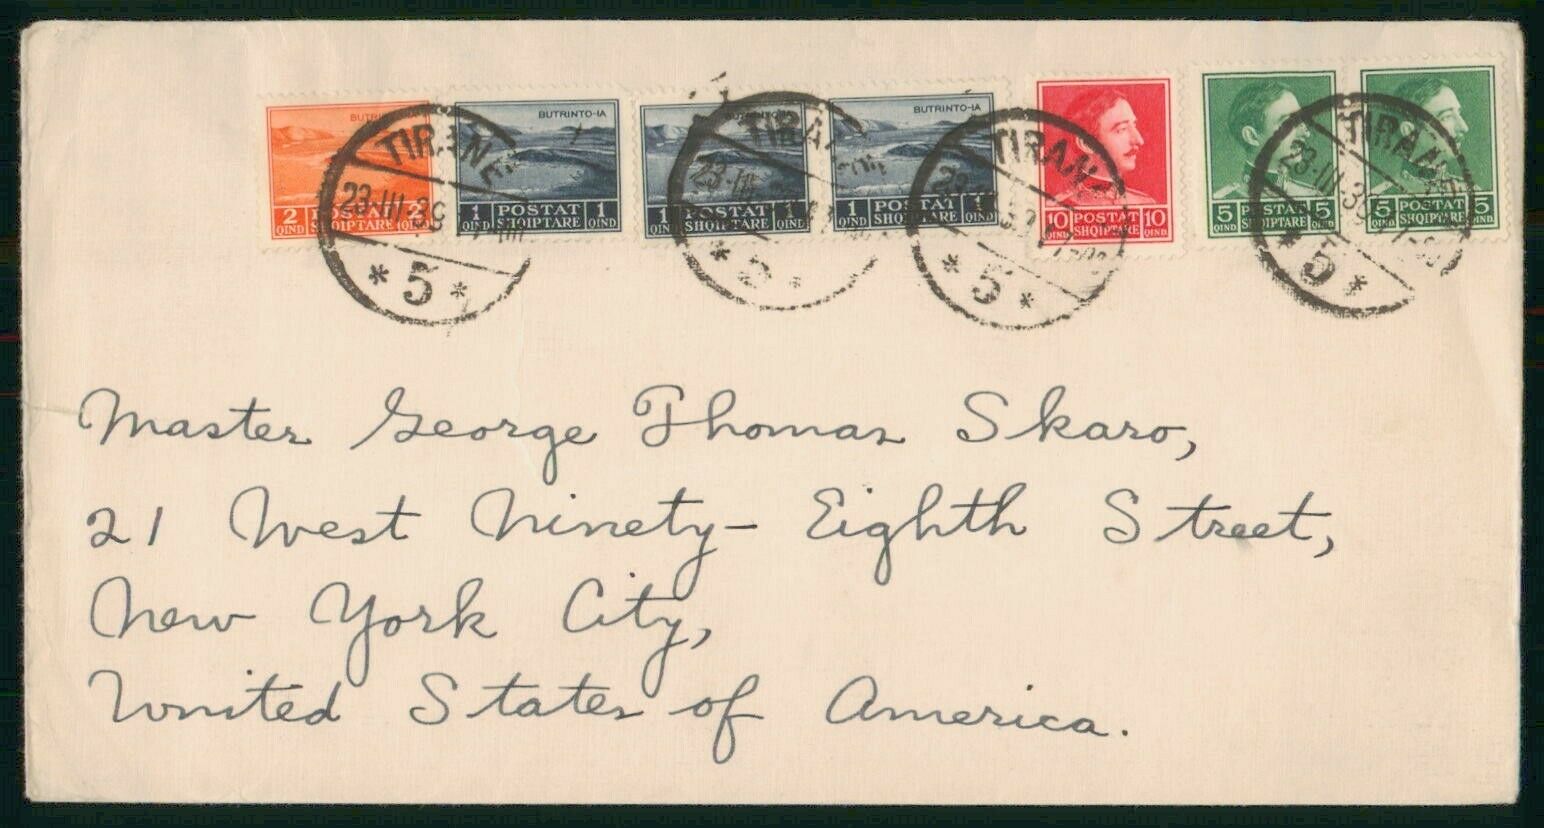 BUTRINTO-IA BUTRINTO-IA BUTRINTO-IA
2 QIND POSTAT SHQIPTARE 2 QIND
1 QIND POSTAT SHQIPTARE 1 QIND
1 QIND POSTAT SHQIPTARE 1 QIND
1 QIND POSTAT SHQIPTARE 1
10 QIND. POSTAT SHQIPTARE 10 QIND.
5 QIND POSTAT SHQIPTARE 5 QIND
5 QIND POSTAT SHQIPTARE 5 QIND
TIRANE
23-III-39
* 5 *
TIRANE
23-III
* 5 *
TIRANE
23
* 5 *
TIRANE
23-III-39
* 5 *
Master George Thomas Skaro,
21 West Ninety-Eighth Street,
New York City,
United States of America.